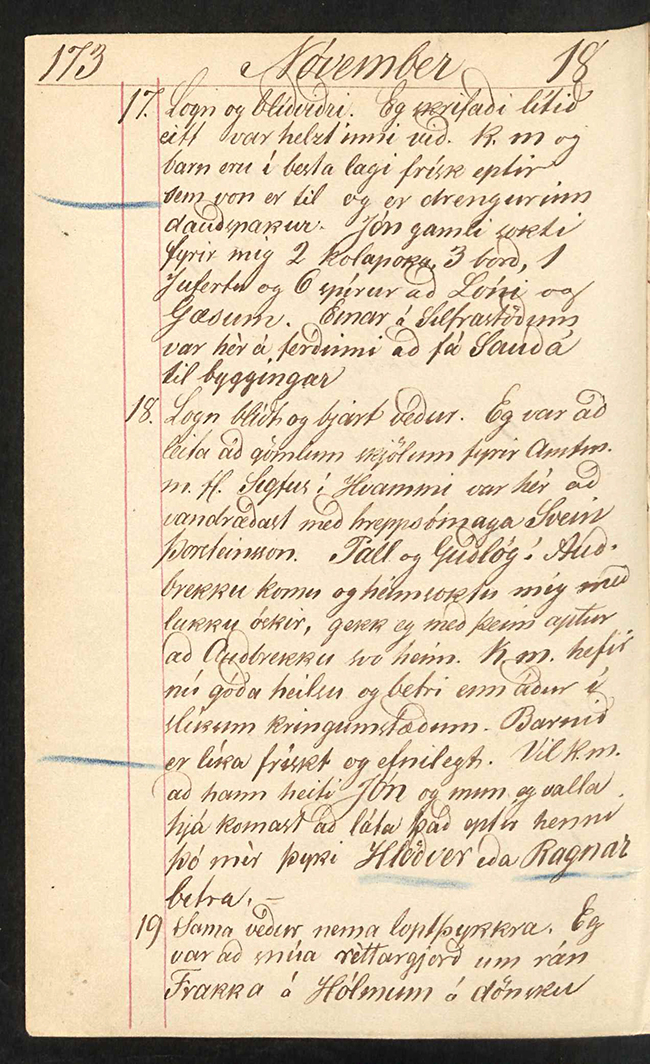 173 Nóvember 18
17. Logn og blíðviðri. Eg skrifaði lítið
eitt var helzt inni við. K. m og
barn eru í besta lagi frísk eptir
sem von er til og er drengurinn
dauðspakur. Jón gamli sokti
fyrir mig 2 kolapoka, 3 borð, 1
Jufertu og 6 spírur að Lóni og
Gæsum. Einar á Silfrastöðum
var hér á ferðinni að fá Sauðá
til byggingar
18. Logn blítt og bjart veður. Eg var að
leita að gömlum skjölum fyrir Amtm.
m. fl. Sigfus í Hvammi var hér að
vandræðast með hreppsómaga Svein
Þorsteinsson. Páll og Guðlög í Auð-
brekku komu og heimsoktu mig með
lukku óskir, gekk eg með þeim aptur
að Auðbrekku svo heim. K. m. hefir
nú góða heilsu og betri enn áður í
slíkum kringumstæðum. Barnið
er líka frískt og efnilegt. Vil K.m.
að hann heiti Jón og mun eg valla
hjá komast að láta það eptir henni
þó mér þyki Hlöðver eða Ragnar
betra. –
19 Sama veður nema loptþykkra. Eg
var að snúa réttargjörð um rán
Frakka á Hólmum á dönsku